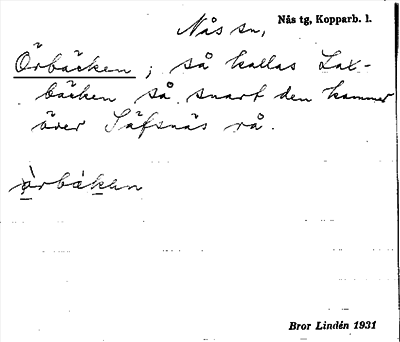 Nås sn, Nås tg, Kopparb. l.
Örbäcken; så kallas Lax-
bäcken så snart den kommer
över Säfsnäs rå.
Bror Lindén 1931